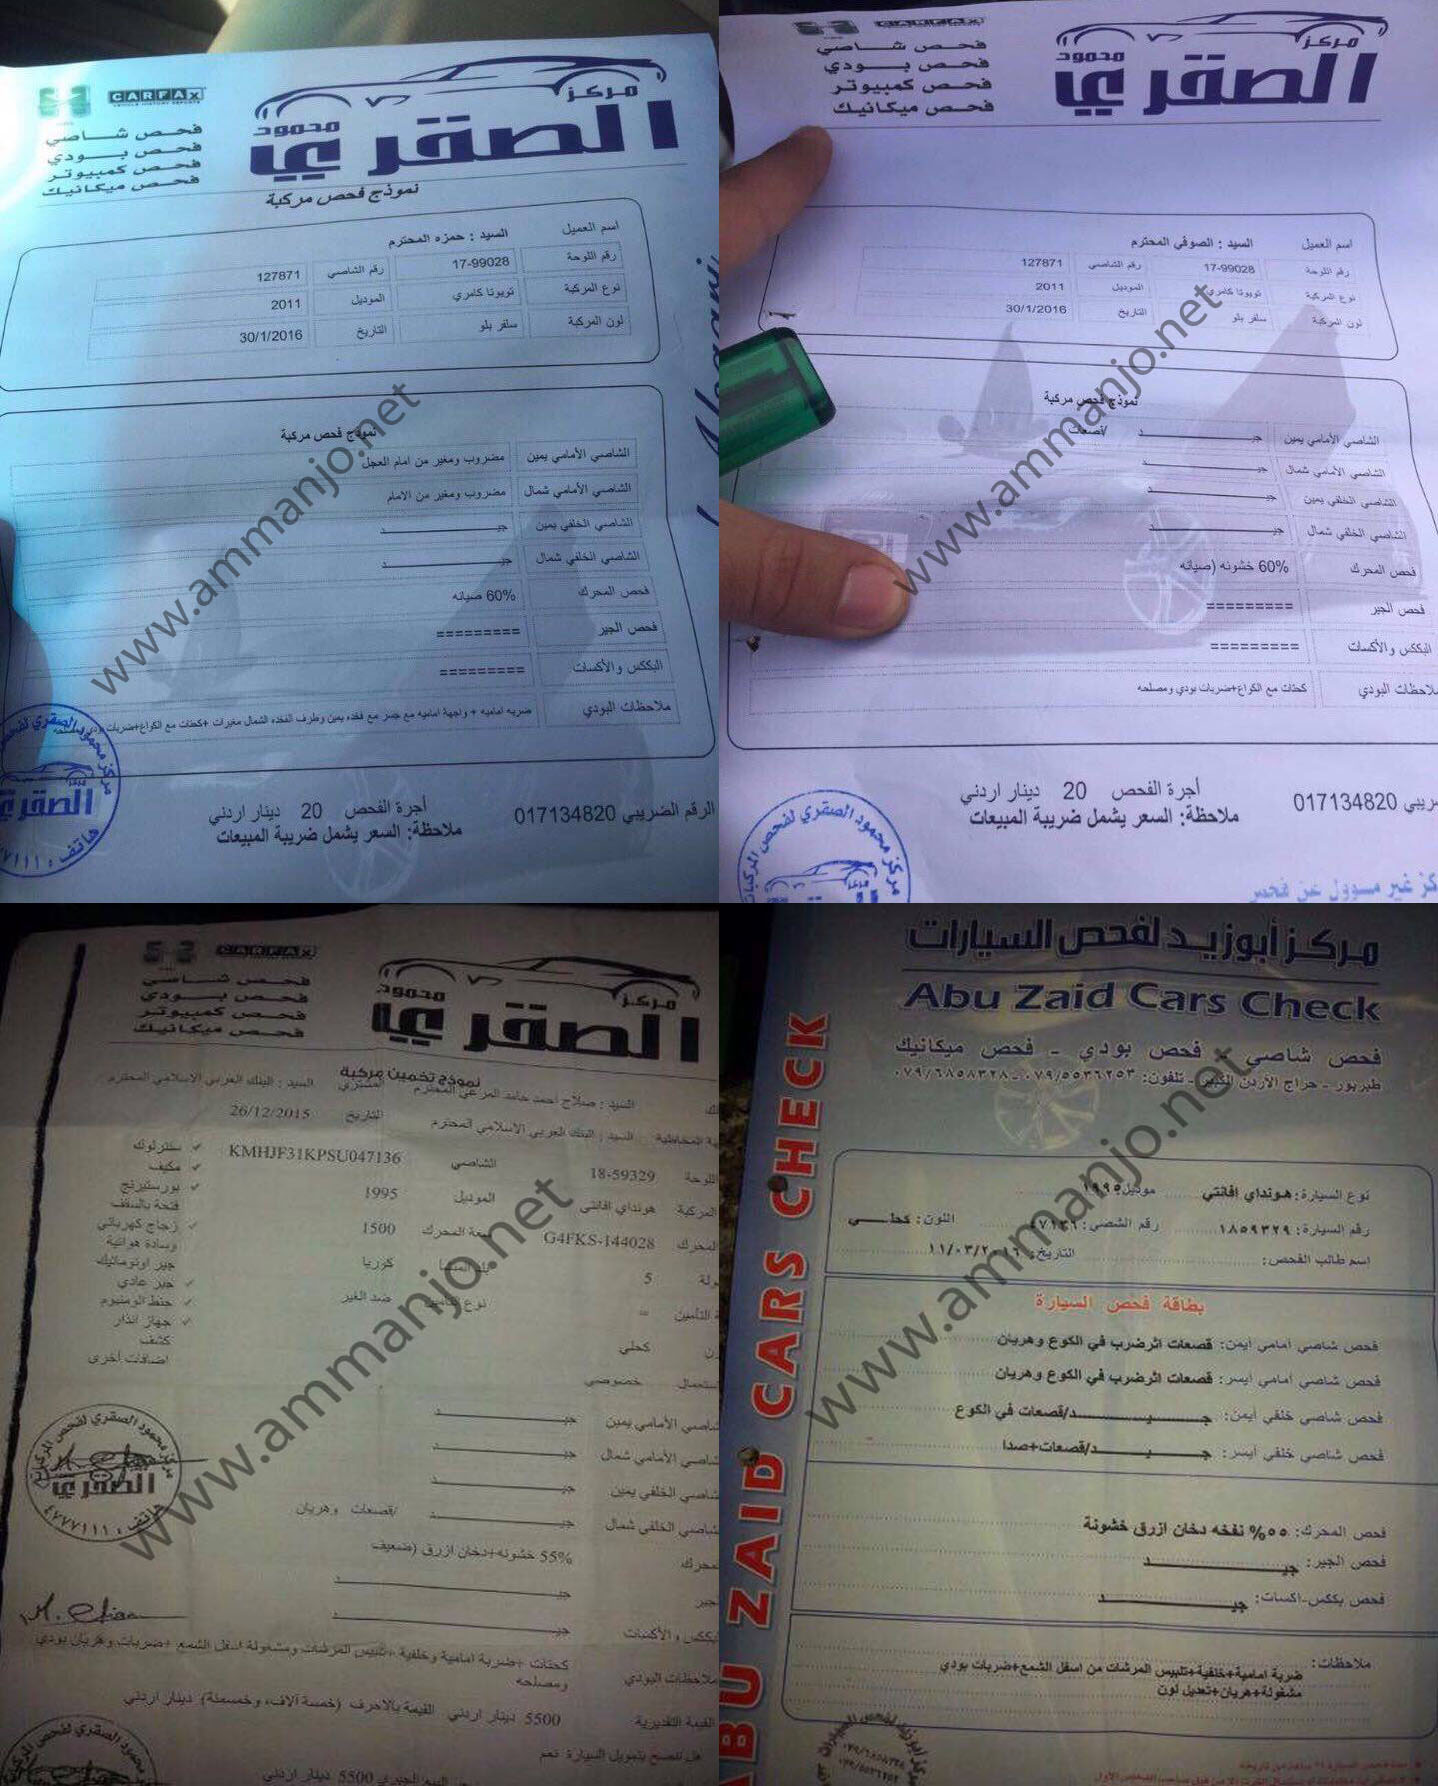 CARFAX
VEHICLE HISTORY REPORTS
مركز
محمود
الصقري
فحص شاصي
فحص بودي
فحص كمبيوتر
فحص ميكانيك
نموذج فحص مركبة
اسم العميل السيد : حمزه المحترم
رقم اللوحة 17-99028 رقم الشاصي 127871
نوع المركبة تويوتا كامري الموديل 2011
لون المركبة سلفر بلو التاريخ 30/1/2016
نموذج فحص مركبة
الشاصي الأمامي يمين مضروب ومغير من امام العجل
الشاصي الأمامي شمال مضروب ومغير من الامام
الشاصي الخلفي يمين جيــــد
الشاصي الخلفي شمال جيــــد
فحص المحرك 60% صيانه
فحص الجير =========
البككس والأكسات =========
ملاحظات البودي ضربه اماميه + واجهة اماميه مع جسر مع فخده يمين وطرف الفخده الشمال مغيرات +كحتات مع الكواع+ضربات
أجرة الفحص 20 دينار اردني
الرقم الضريبي 017134820
ملاحظة: السعر يشمل ضريبة المبيعات
مركز محمود الصقري
الصقري
هاتف :
www.ammanjo.net
CARFAX
مركز
محمود
الصقري
فحص شاصي
فحص بودي
فحص كمبيوتر
فحص ميكانيك
اسم العميل السيد : الصوفي المحترم
رقم اللوحة 17-99028 رقم الشاصي 127871
نوع المركبة تويوتا كامري الموديل 2011
لون المركبة سلفر بلو التاريخ 30/1/2016
نموذج فحص مركبة
الشاصي الأمامي يمين جيــــد /قصعات
الشاصي الأمامي شمال جيــــد
الشاصي الخلفي يمين جيــــد
الشاصي الخلفي شمال جيــــد
فحص المحرك 60% خشونه (صيانه
فحص الجير =========
البككس والأكسات =========
ملاحظات البودي كحتات مع الكواع+ضربات بودي ومصلحه
أجرة الفحص 20 دينار اردني
017134820
ملاحظة: السعر يشمل ضريبة المبيعات
مركز محمود الصقري لفحص المركبات
غير مسؤول عن فحص
www.ammanjo.net
CARFAX
مركز
محمود
الصقري
فحص شاصي
فحص بودي
فحص كمبيوتر
فحص ميكانيك
نموذج تخمين مركبة
السيد : صلاح احمد حامد المرعي المحترم المشتري السيد : البنك العربي الاسلامي المحترم
السيد : البنك العربي الاسلامي المحترم التاريخ 26/12/2015
18-59329 الشاصي KMHJF31KPSU047136
هونداي افانتي الموديل 1995
G4FKS-144028 سعة المحرك 1500
5 كوريا
= نوع التامين ضد الغير
كحلي
خصوصي
سنترلوك
مكيف
بورستيرنج
فتحة بالسقف
زجاج كهربائي
وسادة هوائية
جير اوتوماتيك
جير عادي
جنط الومنيوم
جهاز انذار
كشف
اضافات أخرى
الأمامي يمين جيــــد
الأمامي شمال جيــــد
الخلفي يمين جيــــد
الخلفي شمال جيــــد /قصعات وهريان
المحرك 55% خشونه+دخان ازرق (ضعيف
جيــــد
والأكسات جيــــد
ملاحظات البودي كحتات +ضربة امامية وخلفية +تلبيس المرشات ومشغولة اسفل الشمع +ضربات وهريان بودي
ومصلحه
القيمة التقديرية 5500 دينار اردني القيمة بالاحرف (خمسة آلاف، وخمسمئة) دينار اردني
هل تنصح بتمويل السيارة نعم
5500 دينار اردني
مركز محمود الصقري لفحص المركبات
الصقري
هاتف : ٤٧٧٧١١١
www.ammanjo.net
مركز أبوزيد لفحص السيارات
Abu Zaid Cars Check
فحص شاصي - فحص بودي - فحص ميكانيك
طبربور - حراج الأردن الكبير - تلفون: ٠٧٩/٥٥٣٦٢٥٣ - ٠٧٩/٦٨٥٨٣٢٨
ABU ZAID CARS CHECK
نوع السيارة: هونداي افانتي موديل: ١٩٩٥
رقم السيارة: ١٨٥٩٣٢٩ رقم الشصي: ٤٧١٣٦ اللون: كحلي
اسم طالب الفحص: التاريخ: ١١/٠٣/٢٠١٦
بطاقة فحص السيارة
فحص شاصي أمامي أيمن: قصعات اثرضرب في الكوع وهريان
فحص شاصي أمامي أيسر: قصعات اثرضرب في الكوع وهريان
فحص شاصي خلفي أيمن: جيــــد/قصعات في الكوع
فحص شاصي خلفي أيسر: جيــــد/قصعات+صدا
فحص المحرك: ٥٥% نفخه دخان ازرق خشونة
فحص الجير: جيــــد
فحص بككس-اكسات: جيــــد
ملاحظات: ضربة امامية+خلفية+تلبيس المرشات من اسفل الشمع+ضربات بودي
مشغولة+هريان+تعديل لون
www.ammanjo.net